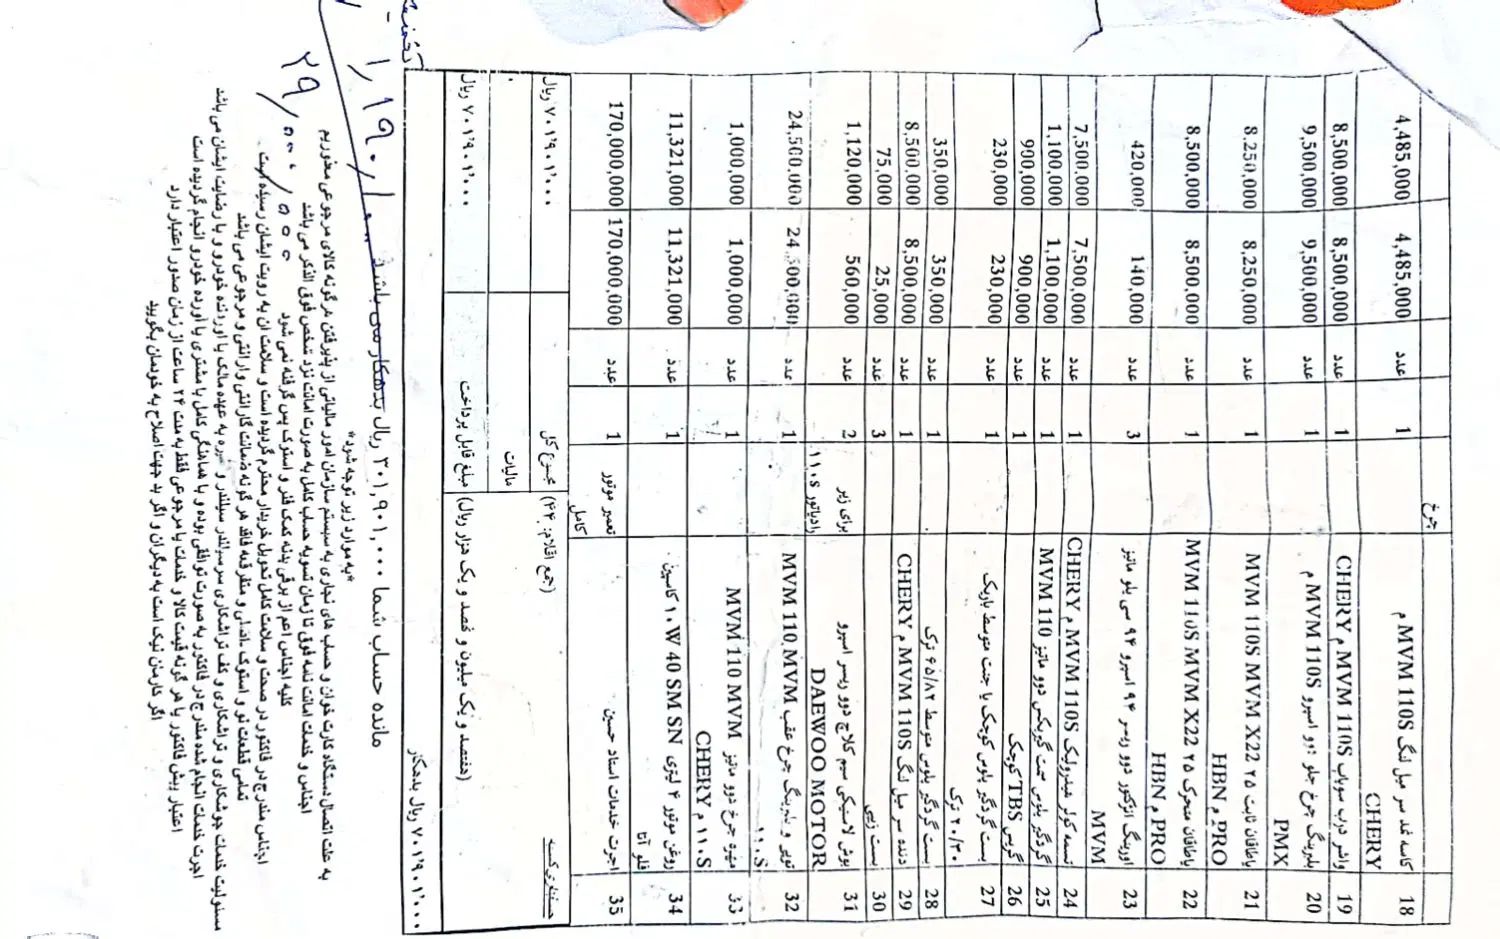 چرخ
18 کاسه نمد سر میل لنگ MVM 110S م CHERY 1 عدد 4,485,000 4,485,000
19 واشر درب سوپاپ CHERY م MVM 110S 1 عدد 8,500,000 8,500,000
20 بلبرینگ چرخ جلو دوو اسپرو MVM 110S م PMX 1 عدد 9,500,000 9,500,000
21 یاطاقان ثابت ۲۵ MVM 110S MVM X22 HBN م PRO 1 عدد 8,250,000 8,250,000
22 یاطاقان متحرک ۲۵ MVM 110S MVM X22 HBN م PRO 1 عدد 8,500,000 8,500,000
23 اورینگ انژکتور دوو ریسر ۹۴ اسپرو ۹۴ سی یلو ماتیز MVM 3 عدد 140,000 420,000
24 تسمه کولر هیدرولیک CHERY م MVM 110S 1 عدد 7,500,000 7,500,000
25 گردگیر پلوس ست گیربکس دوو ماتیز MVM 110 1 عدد 1,100,000 1,100,000
26 گریس TBS کوچک 1 عدد 900,000 900,000
27 بست گردگیر پلوس کوچک یا جنت متوسط باریک ۲۰/۳۰ ترک 1 عدد 230,000 230,000
28 بست گردگیر پلوس متوسط ۶۵/۸۲ ترک 1 عدد 350,000 350,000
29 دنده سر میل لنگ CHERY م MVM 110S 1 عدد 8,500,000 8,500,000
30 بست زیپی 3 عدد 25,000 75,000
31 بوش لاستیکی سیم کلاچ دوو ریسر اسپرو DAEWOO MOTOR برای زیر رادیاتور ۱۱۰s 2 عدد 560,000 1,120,000
32 توپی و بلبرینگ چرخ عقب MVM 110 MVM ۱۱۰S 1 عدد 24,500,000 24,500,000
33 مهره چرخ دوو ماتیز MVM 110 MVM ۱۱۰S م CHERY 1 عدد 1,000,000 1,000,000
34 روغن موتور ۴ لیتری ۱۰W 40 SM SN کاسپین فلو آتا 1 عدد 11,321,000 11,321,000
35 اجرت خدمات استاد حسین تعمیر موتور کامل 1 عدد 170,000,000 170,000,000
(جمع اقلام: ۴۴) مجموع کل ۷۰۱,۹۰۱,۰۰۰ ریال
مالیات ۰
(هفتصد و یک میلیون و نهصد و یک هزار ریال) مبلغ قابل پرداخت ۷۰۱,۹۰۱,۰۰۰ ریال
۷۰۱,۹۰۱,۰۰۰ ریال بدهکار
تخفیف
مانده حساب شما ۳۰۱,۹۰۱,۰۰۰ ریال بدهکار می باشد
*به موارد زیر توجه شود*
به علت اتصال دستگاه کارت خوان و حساب های تجاری به سیستم سازمان امور مالیاتی از پذیرفتن هرگونه کالای مرجوعی معذوریم
اجناس و خدمات امانت نامه فوق تا زمان تسویه حساب کامل به صورت امانت نزد شخص فوق الذکر می باشد
کلیه اجناس اعم از برقی بدنه کمک فنر و استوک پس گرفته نمی شود
اجناس مندرج در فاکتور در صحت و سلامت کامل تحویل خریدار محترم گردیده است و سلامت آن به رویت ایشان رسیده است
تمامی قطعات نو و استوک اصلی و متفرقه فاقد هر گونه ضمانت گارانتی وارانتی و مرجوعی می باشد
مسئولیت خدمات جوشکاری و تراشکاری و کف تراشکاری سرسیلندر سیلندر و غیره به عهده مالک یا آورنده خودرو و با رضایت ایشان می باشد
اجرت خدمات انجام شده مندرج در فاکتور به صورت توافقی بوده و با هماهنگی کامل با مشتری یا آورنده خودرو انجام گردیده است
اعتبار پیش فاکتور یا هر گونه قیمت کالا و خدمات یا مرجوعی فقط به مدت ۲۴ ساعت از زمان صدور اعتبار دارد
اگر کارمان نیک است به دیگران و اگر بد جهت اصلاح به خودمان بگویید